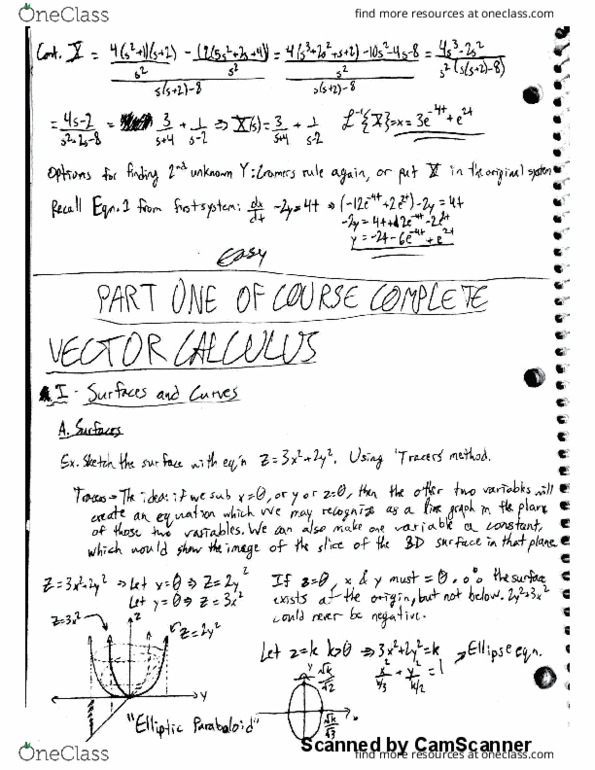 OneClass
find more resources at oneclass.com
Cont. X = 4(s²+1)(s+2)/s² - (2(5s²+2s+4))/s² / s(s+2)-8 = 4(s³+2s²+s+2)-10s²-4s-8 / s² / s(s+2)-8 = 4s³-2s² / s²(s(s+2)-8)
= 4s-2 / s²+2s-8 = 3/s+4 + 1/s-2 ⇒ X(s) = 3/s+4 + 1/s-2 L⁻¹{X} = x = 3e^-4t + e^2t
Options for finding 2nd unknown Y: Cramers rule again, or put X in the original system
Recall Eqn. 1 from first system: dx/dt -2y=4t ⇒ (-12e^-4t + 2e^2t) -2y = 4t
-2y = 4t+12e^-4t -2e^2t
y = -2t -6e^-4t + e^2t
easy
PART ONE OF COURSE COMPLETE
VECTOR CALCULUS
I - Surfaces and Curves
A. Surfaces
Ex. Sketch the surface with eq'n z=3x²+2y². Using 'Traces' method.
Traces → The idea: if we sub x=0, or y or z=0, then the other two variables will
create an equation which we may recognize as a line graph in the plane
of those two variables. We can also make one variable a constant,
which would show the image of the slice of the 3D surface in that plane
z=3x²+2y² ⇒ Let x=0 ⇒ z=2y²
Let y=0 ⇒ z=3x²
If z=0, x & y must = 0. ∴ the surface
exists at the origin, but not below. 2y²+3x²
could never be negative.
z=3x²
z
z=2y²
y
"Elliptic Paraboloid"
Let z=k k>0 ⇒ 3x²+2y²=k → Ellipse eqn.
x²/k/3 + y²/k/2 = 1
y
√k/√2
√k/√3
x
Scanned by CamScanner
OneClass
find more resources at oneclass.com